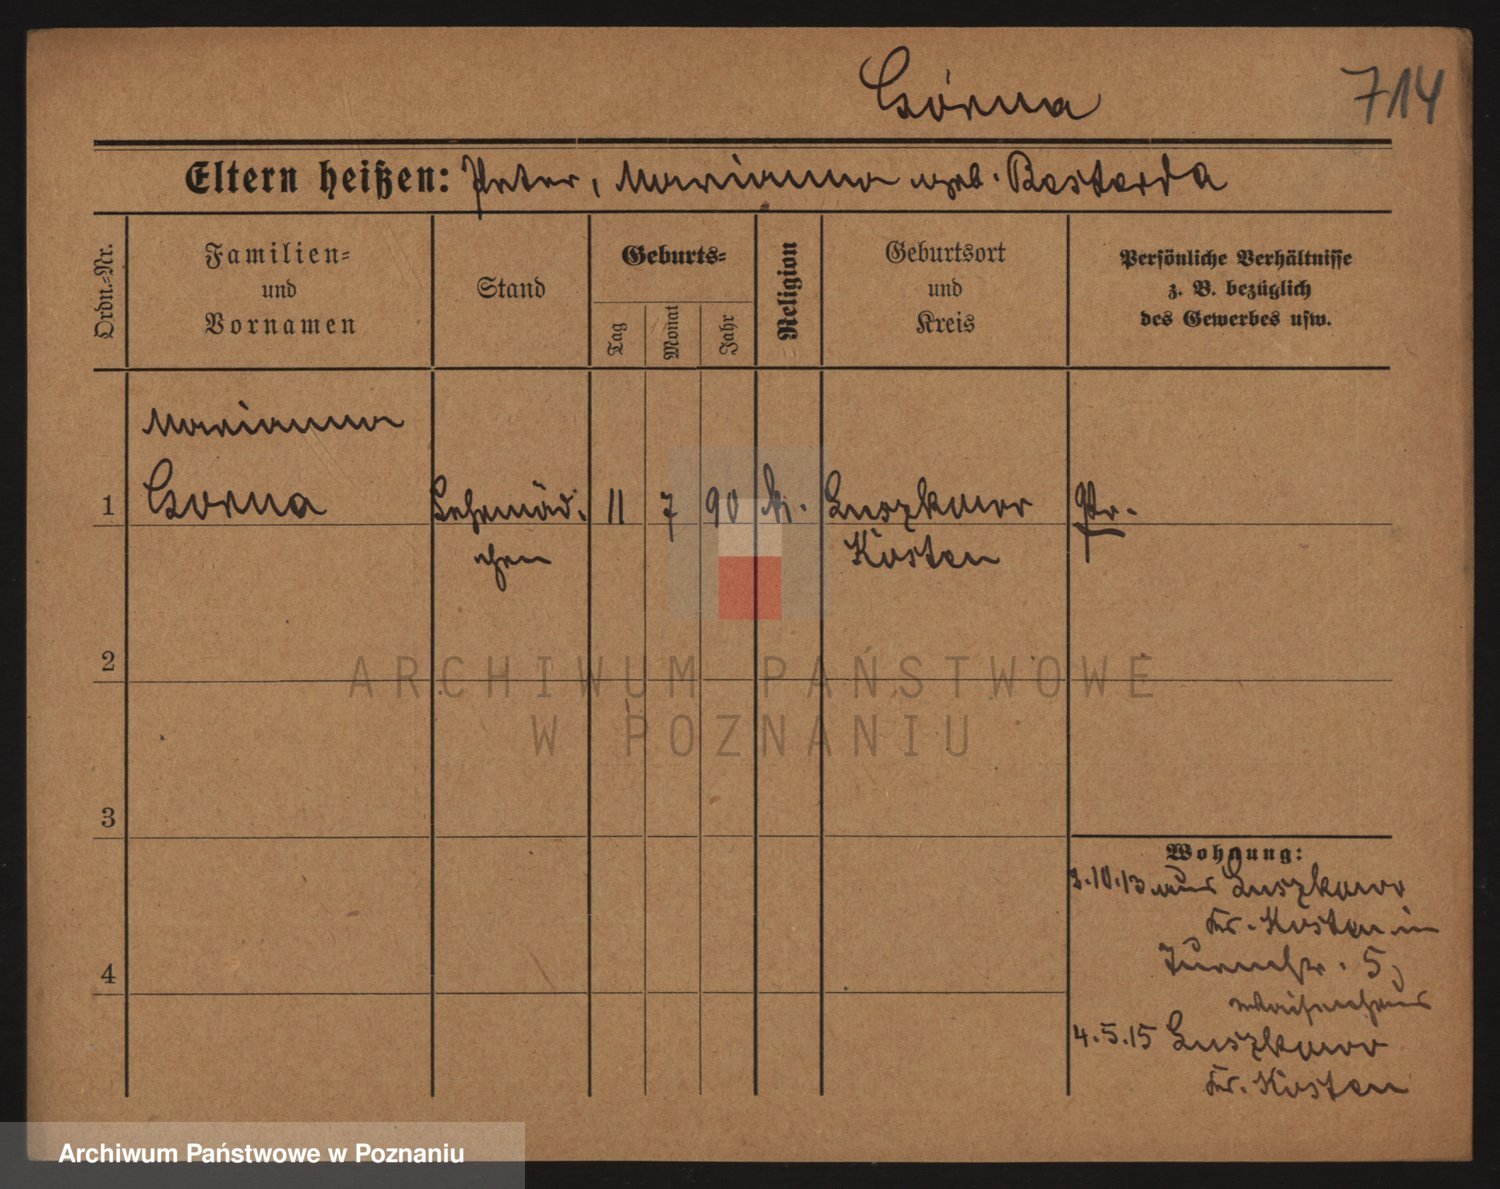 Górna
714
Eltern heißen: Peter, Marianna geb. Bastarda
Ordn.-Nr.
Familien-
und
Vornamen
Stand
Geburts-
Tag
Monat
Jahr
Religion
Geburtsort
und
Kreis
Persönliche Verhältnisse
z. B. bezüglich
des Gewerbes usw.
Marianna
1 Gorna Lehrmäd. 11 7 90 k. Luszkowo Pr.
chen Kosten
2
3
4
Wohnung:
3.10.13 aus Luszkowo
Kr. Kosten in
Turmstr. 5,
Waisenhaus
4.5.15 Luszkowo
Kr. Kosten
ARCHIWUM PAŃSTWOWE
W POZNANIU
Archiwum Państwowe w Poznaniu